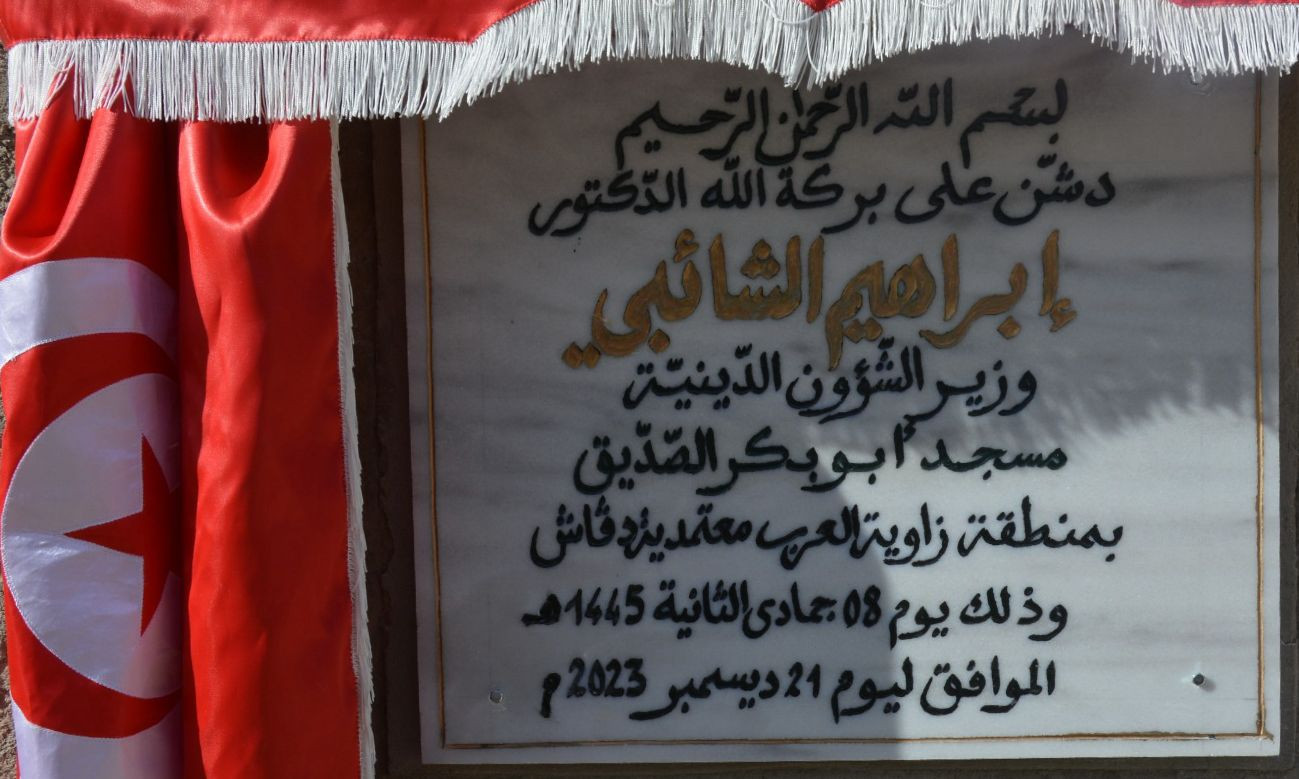 بسم الله الرّحمن الرّحيم
دشّن على بركة الله الدّكتور
إبراهيم الشائبي
وزير الشّؤون الدّينيّة
مسجد أبو بكر الصّدّيق
بمنطقة زاوية العرب معتمدية دڨاش
وذلك يوم 08 جمادى الثانية 1445 هـ
الموافق ليوم 21 ديسمبر 2023 م